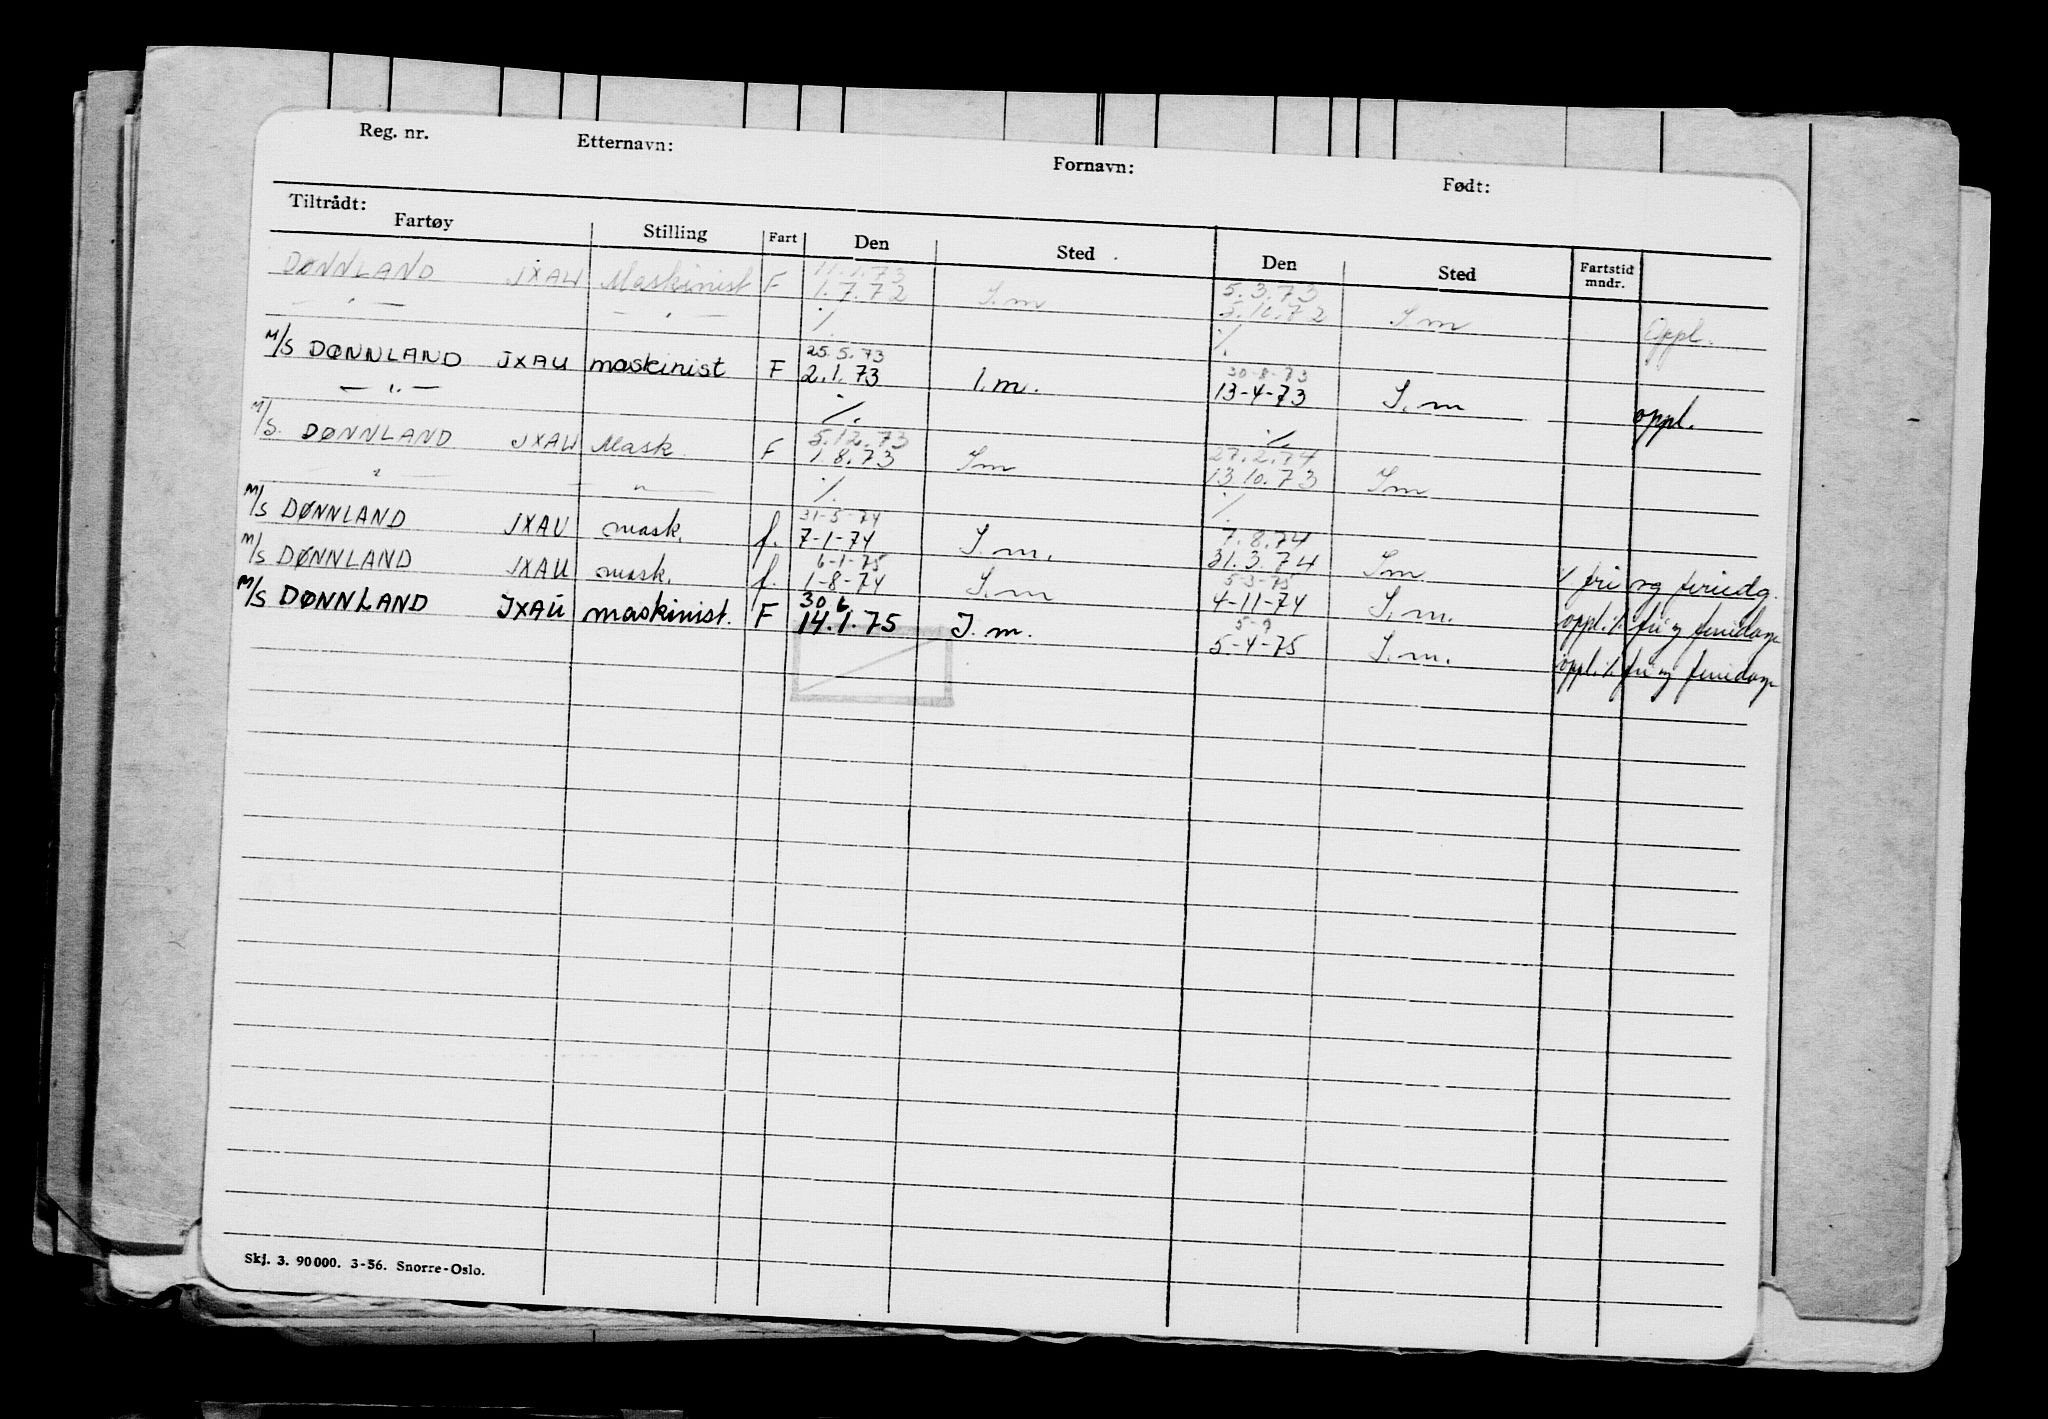 Reg. nr. Etternavn: Fornavn: Født:
Tiltrådt:
Fartøy Stilling Fart Den Sted Den Sted Fartstid mndr.
11.1.73 5.3.73
DØNNLAND JXAU Maskinist F 1.7.72 I.m 5.10.72 I m Oppl.
— " — — " — ./. ./.
25.5.73 30-8-73
M/S DØNNLAND JXAU maskinist F 2.1.73 I.m. 13-4-73 I.m oppl.
— " — ./. ./.
5.12.73 27.2.74
M/S. DØNNLAND JXAU Mask F 1.8.73 Im 13.10.73 Im
" — " — ./. ./.
31-5-74 7.8.74
M/S DØNNLAND JXAU mask. f. 7-1-74 I.m. 31.3.74 Im ./. fri og feriedg.
6-1-75 5-3-75
M/S DØNNLAND JXAU mask. f. 1-8-74 I.m 4-11-74 I.m. oppl. ./. fri og feriedage
30.6 5-9
M/S DØNNLAND JXAU maskinist. F 14.1.75 I.m. 5-4-75 I.m. oppl. ./. fri og feriedage
Skj. 3. 90 000. 3-56. Snorre-Oslo.